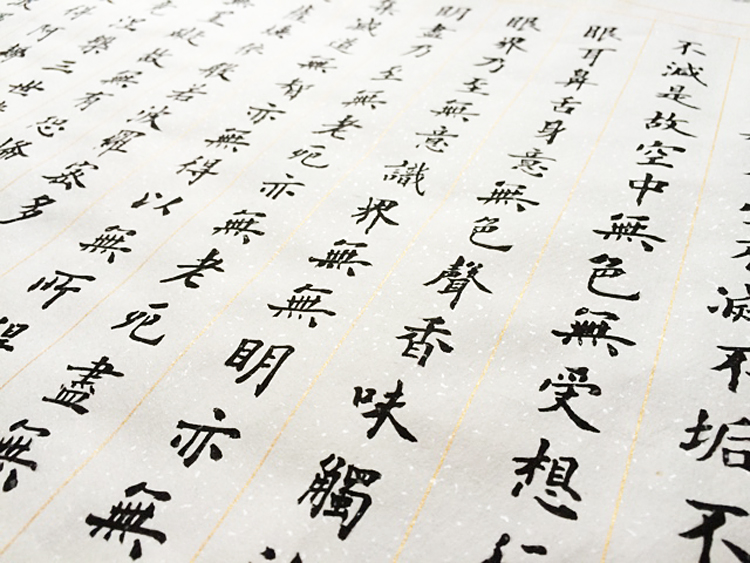 滅不垢不
不減是故空中無色無受想
眼耳鼻舌身意無色聲香味觸
眼界乃至無意識界無無明亦無
明盡乃至無老死亦無老死盡無
集滅道無智亦無得以無所得
薩埵依般若波羅蜜多
礙故無有恐
涅槃三世